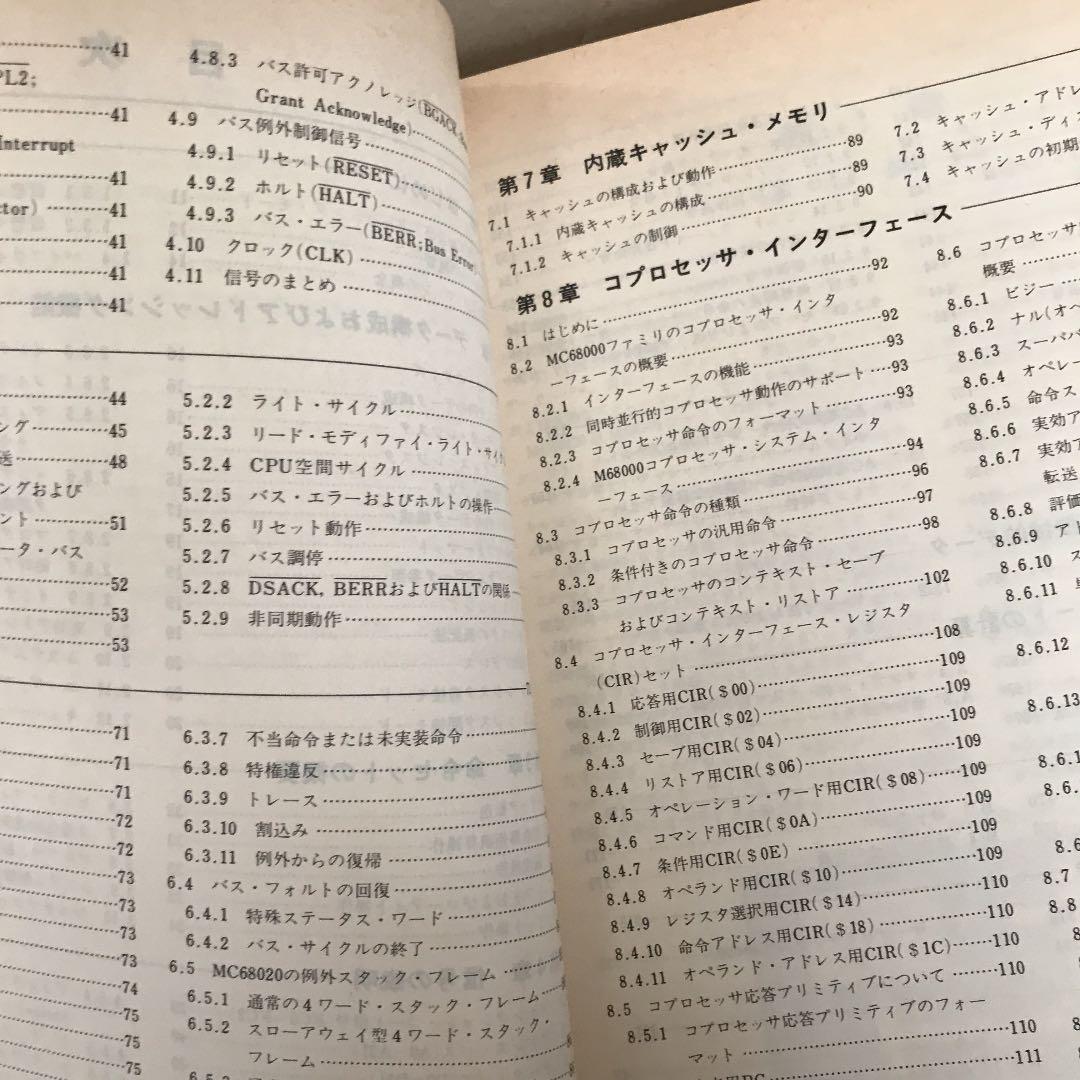 41
PL2;
41
Interrupt
41
ctor) 41
41
41
41
4.8.3 バス許可アクノレッジ(BGACK
Grant Acknowledge)
4.9 バス例外制御信号
4.9.1 リセット(RESET)
4.9.2 ホルト(HALT)
4.9.3 バス・エラー(BERR;Bus Error)
4.10 クロック(CLK)
4.11 信号のまとめ
44
ング 45
送 48
ングおよび
ント 51
ータ・バス
52
53
53
5.2.2 ライト・サイクル
5.2.3 リード・モディファイ・ライト・サイク
5.2.4 CPU空間サイクル
5.2.5 バス・エラーおよびホルトの操作
5.2.6 リセット動作
5.2.7 バス調停
5.2.8 DSACK, BERRおよびHALTの関係
5.2.9 非同期動作
71
71
71
72
72
73
73
73
73
74
75
75
75
6.3.7 不当命令または未実装命令
6.3.8 特権違反
6.3.9 トレース
6.3.10 割込み
6.3.11 例外からの復帰
6.4 バス・フォルトの回復
6.4.1 特殊ステータス・ワード
6.4.2 バス・サイクルの終了
6.5 MC68020の例外スタック・フレーム
6.5.1 通常の4ワード・スタック・フレーム
6.5.2 スローアウェイ型4ワード・スタック・
フレーム
第7章 内蔵キャッシュ・メモリ
7.1 キャッシュの構成および動作 89
7.1.1 内蔵キャッシュの構成 89
7.1.2 キャッシュの制御 90
7.2 キャッシュ・アドレ
7.3 キャッシュ・ディス
7.4 キャッシュの初期
第8章 コプロセッサ・インターフェース
8.1 はじめに 92
8.2 MC68000ファミリのコプロセッサ・インタ
ーフェースの概要 92
8.2.1 インターフェースの機能 93
8.2.2 同時並行的コプロセッサ動作のサポート 93
8.2.3 コプロセッサ命令のフォーマット 93
8.2.4 M68000コプロセッサ・システム・インタ
ーフェース 94
8.3 コプロセッサ命令の種類 96
8.3.1 コプロセッサの汎用命令 97
8.3.2 条件付きのコプロセッサ命令 98
8.3.3 コプロセッサのコンテキスト・セーブ
およびコンテキスト・リストア 102
8.4 コプロセッサ・インターフェース・レジスタ
(CIR)セット 108
8.4.1 応答用CIR($00) 109
8.4.2 制御用CIR($02) 109
8.4.3 セーブ用CIR($04) 109
8.4.4 リストア用CIR($06) 109
8.4.5 オペレーション・ワード用CIR($08) 109
8.4.6 コマンド用CIR($0A) 109
8.4.7 条件用CIR($0E) 109
8.4.8 オペランド用CIR($10) 109
8.4.9 レジスタ選択用CIR($14) 110
8.4.10 命令アドレス用CIR($18) 110
8.4.11 オペランド・アドレス用CIR($1C) 110
8.5 コプロセッサ応答プリミティブについて 110
8.5.1 コプロセッサ応答プリミティブのフォー
マット 110
111
8.6 コプロセッサ
概要
8.6.1 ビジー
8.6.2 ナル(オペ
8.6.3 スーパバ
8.6.4 オペレー
8.6.5 命令ス
8.6.6 実効ア
8.6.7 実効ア
転送
8.6.8 評価
8.6.9 アド
8.6.10
8.6.11
8.6.12
8.6.13
8.6.1
8.6.
8.6
8.7
8.8